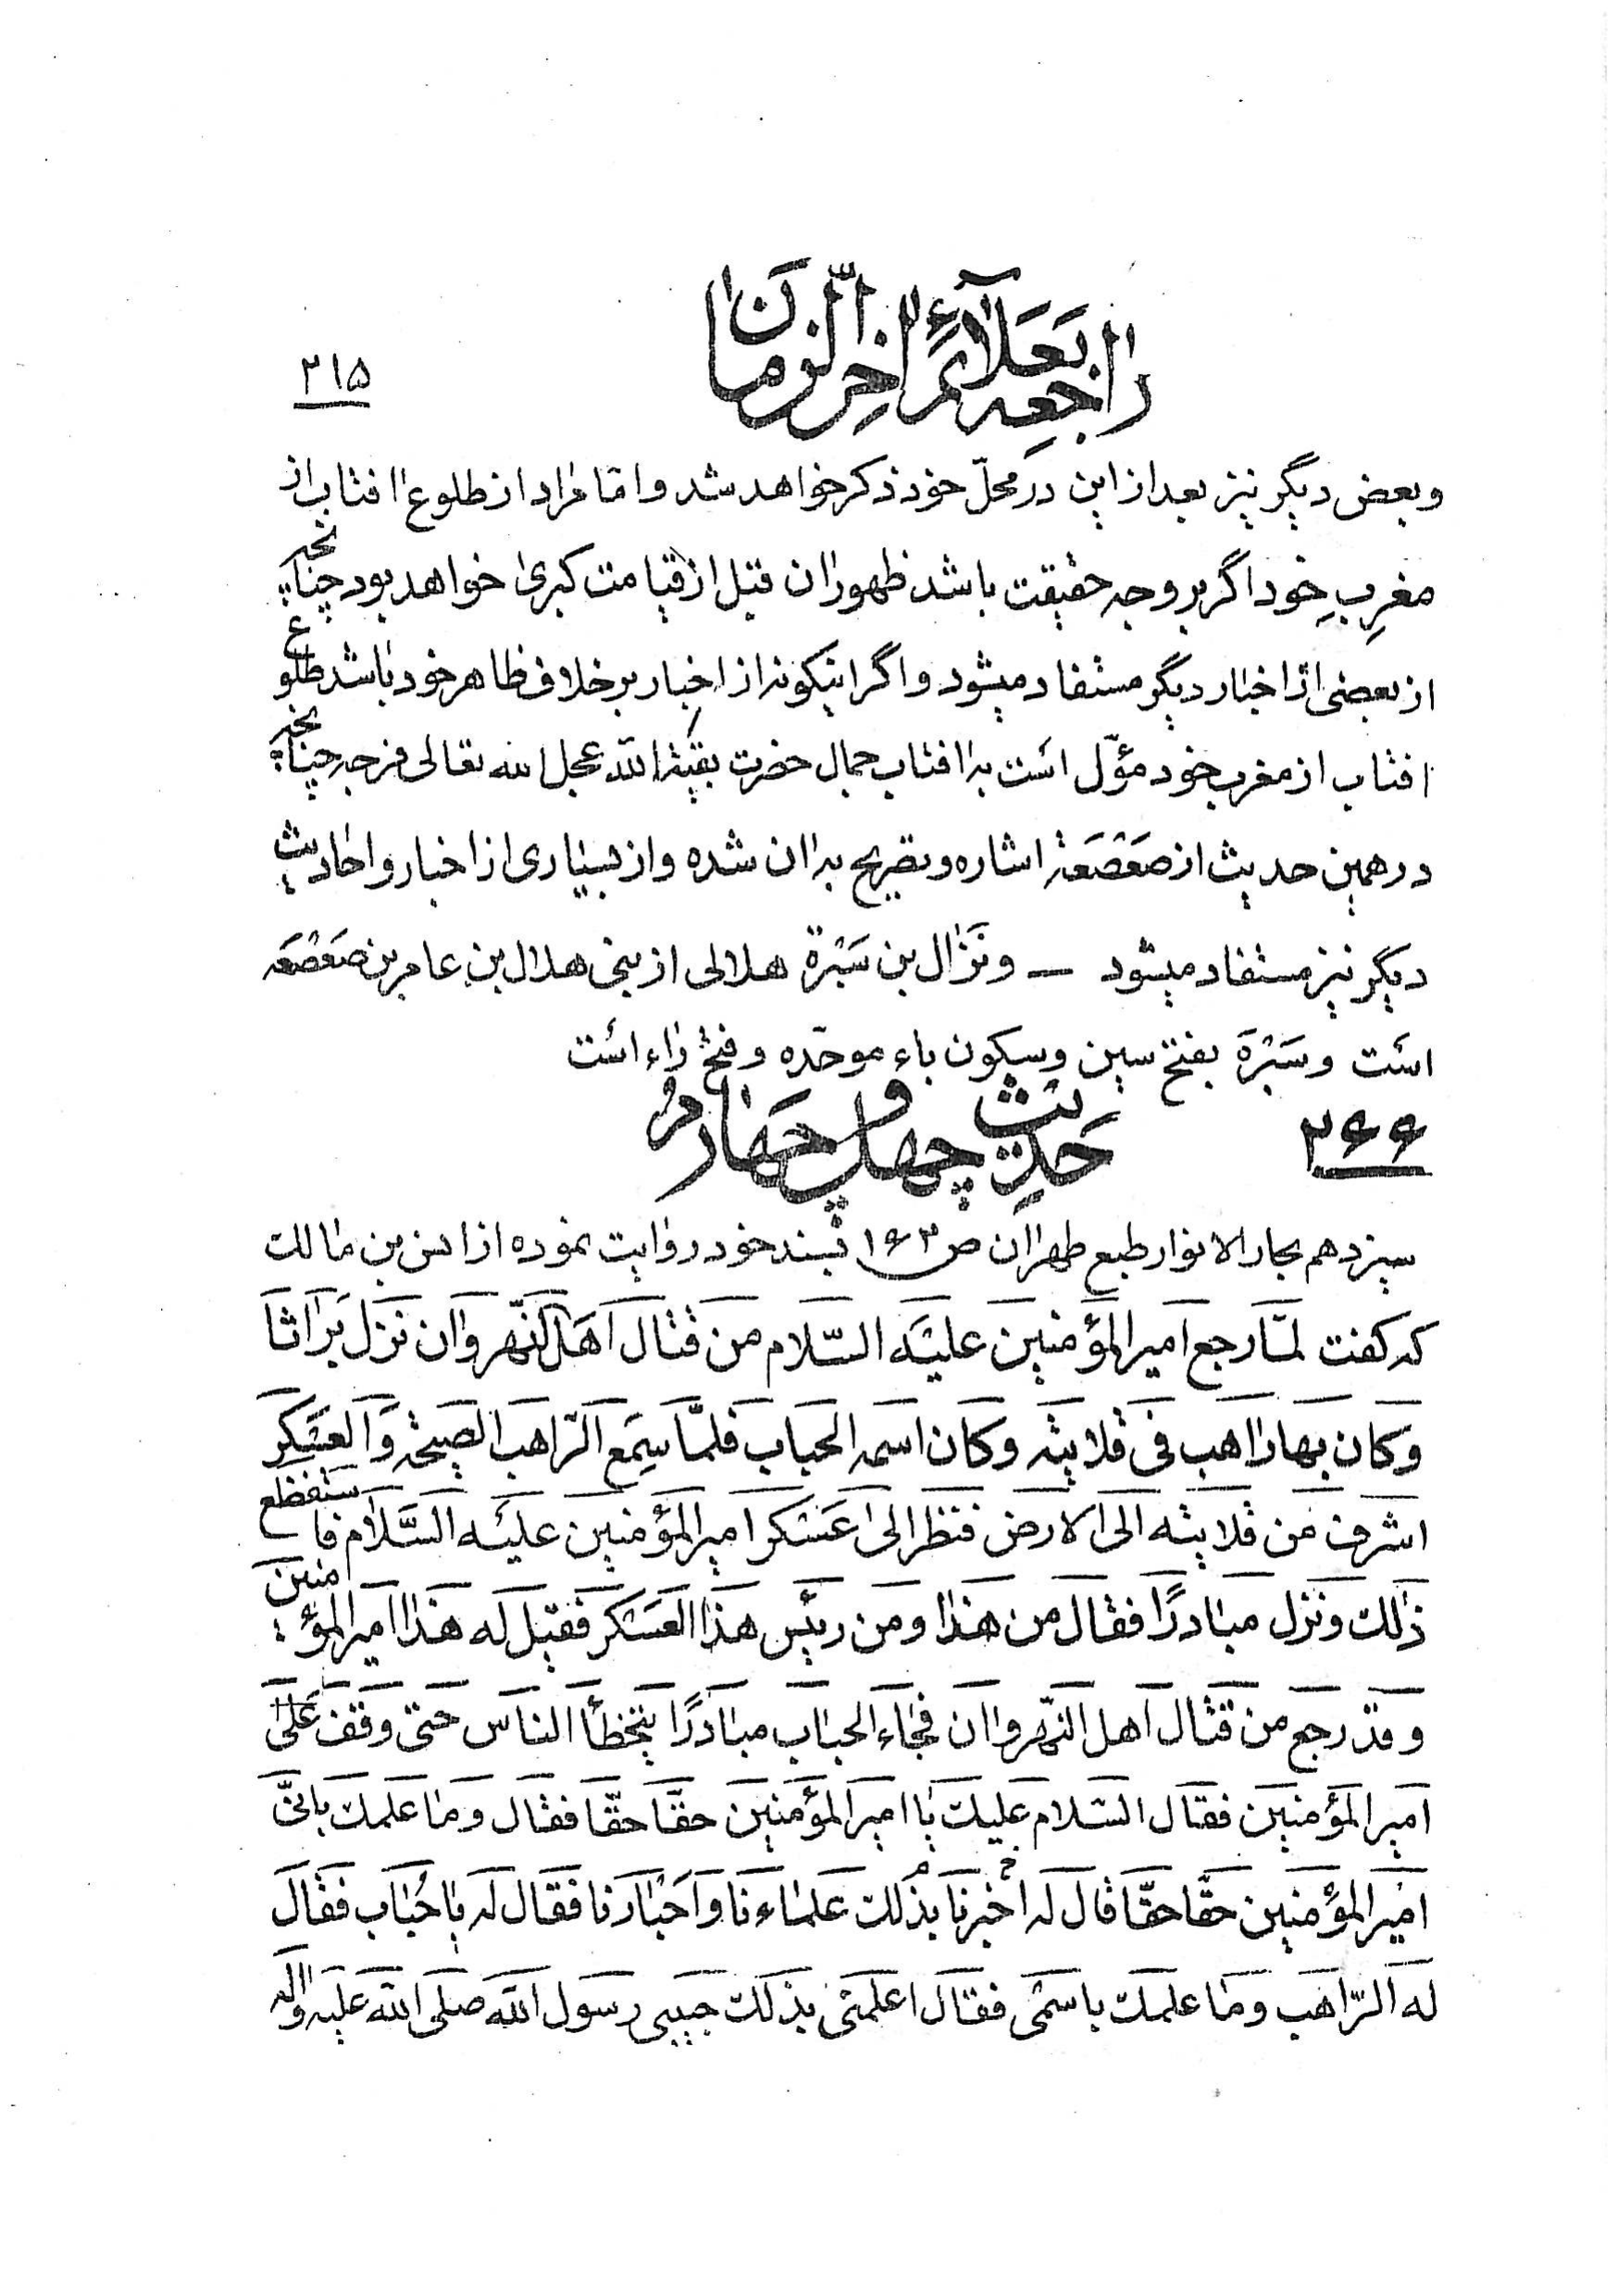 راجعه بعلائم اخر الزمان
۲۱۵
و بعض دیگر نیز بعد از این در محلّ خود ذکر خواهد شد و امّا مراد از طلوع افتاب از
مغرِبِ خود اگر بر وجه حقیقت باشد ظهور ان قبل از قیامت کبری خواهد بود چنانچه
از بعضی از اخبار دیگر مستفاد میشود و اگر اینگونه از اخبار بر خلاف ظاهر خود باشد طلوع
افتاب از مغرب خود مؤّل است به افتاب جمال حضرت بقیّة اللّه عجل الله تعالی فرجه چنانچه
در همین حدیث از صَعْصَعَة اشاره و تصریح به ان شده و از بسیاری از اخبار و احادیث
دیگر نیز مستفاد میشود — و نَزّال بن سَبْرة هلالی از بنی هلال بن عامر بن صَعْصَعَه
است و سَبْرَة بفتح سین و سکون باء موحّده و فتح راء است
۲۶۶
حَدیث چهل و چهارم
سیزدهم بحار الانوار طبع طهران ص ۱۶۳ بسند خود روایت نموده از انس بن مالک
که گفت لمّا رجع امیر المؤمنین علیه السّلام من قتال اهل النّهروان نزل بَراثا
و کان بها راهب فی قلایته و کان اسمه الحباب فلمّا سمِع الرّاهب الصیحة و العسکر
اشرف من قلایته الی الارض فنظر الی عسکر امیر المؤمنین علیه السَّلام فاستفظع
ذلک و نزل مبادرًا فقال من هذا و من رئیس هذا العسکر فقیل له هذا امیر المؤمنین
و قد رجع من قتال اهل النّهروان فجاء الحباب مبادرًا یتخطأ الناس حتی وقف علی
امیر المؤمنین فقال السّلام علیک یا امیر المؤمنین حقّا حقّا فقال و ما علمک بانّی
امیر المؤمنین حقّا حقّا قال له اخبرنا بذلک علماءنا و احبارنا فقال له یا حُباب فقال
له الرّاهب و ما علمک باسمی فقال اعلمنی بذلک حبیبی رسول اللّه صلی اللّه علیه و اله